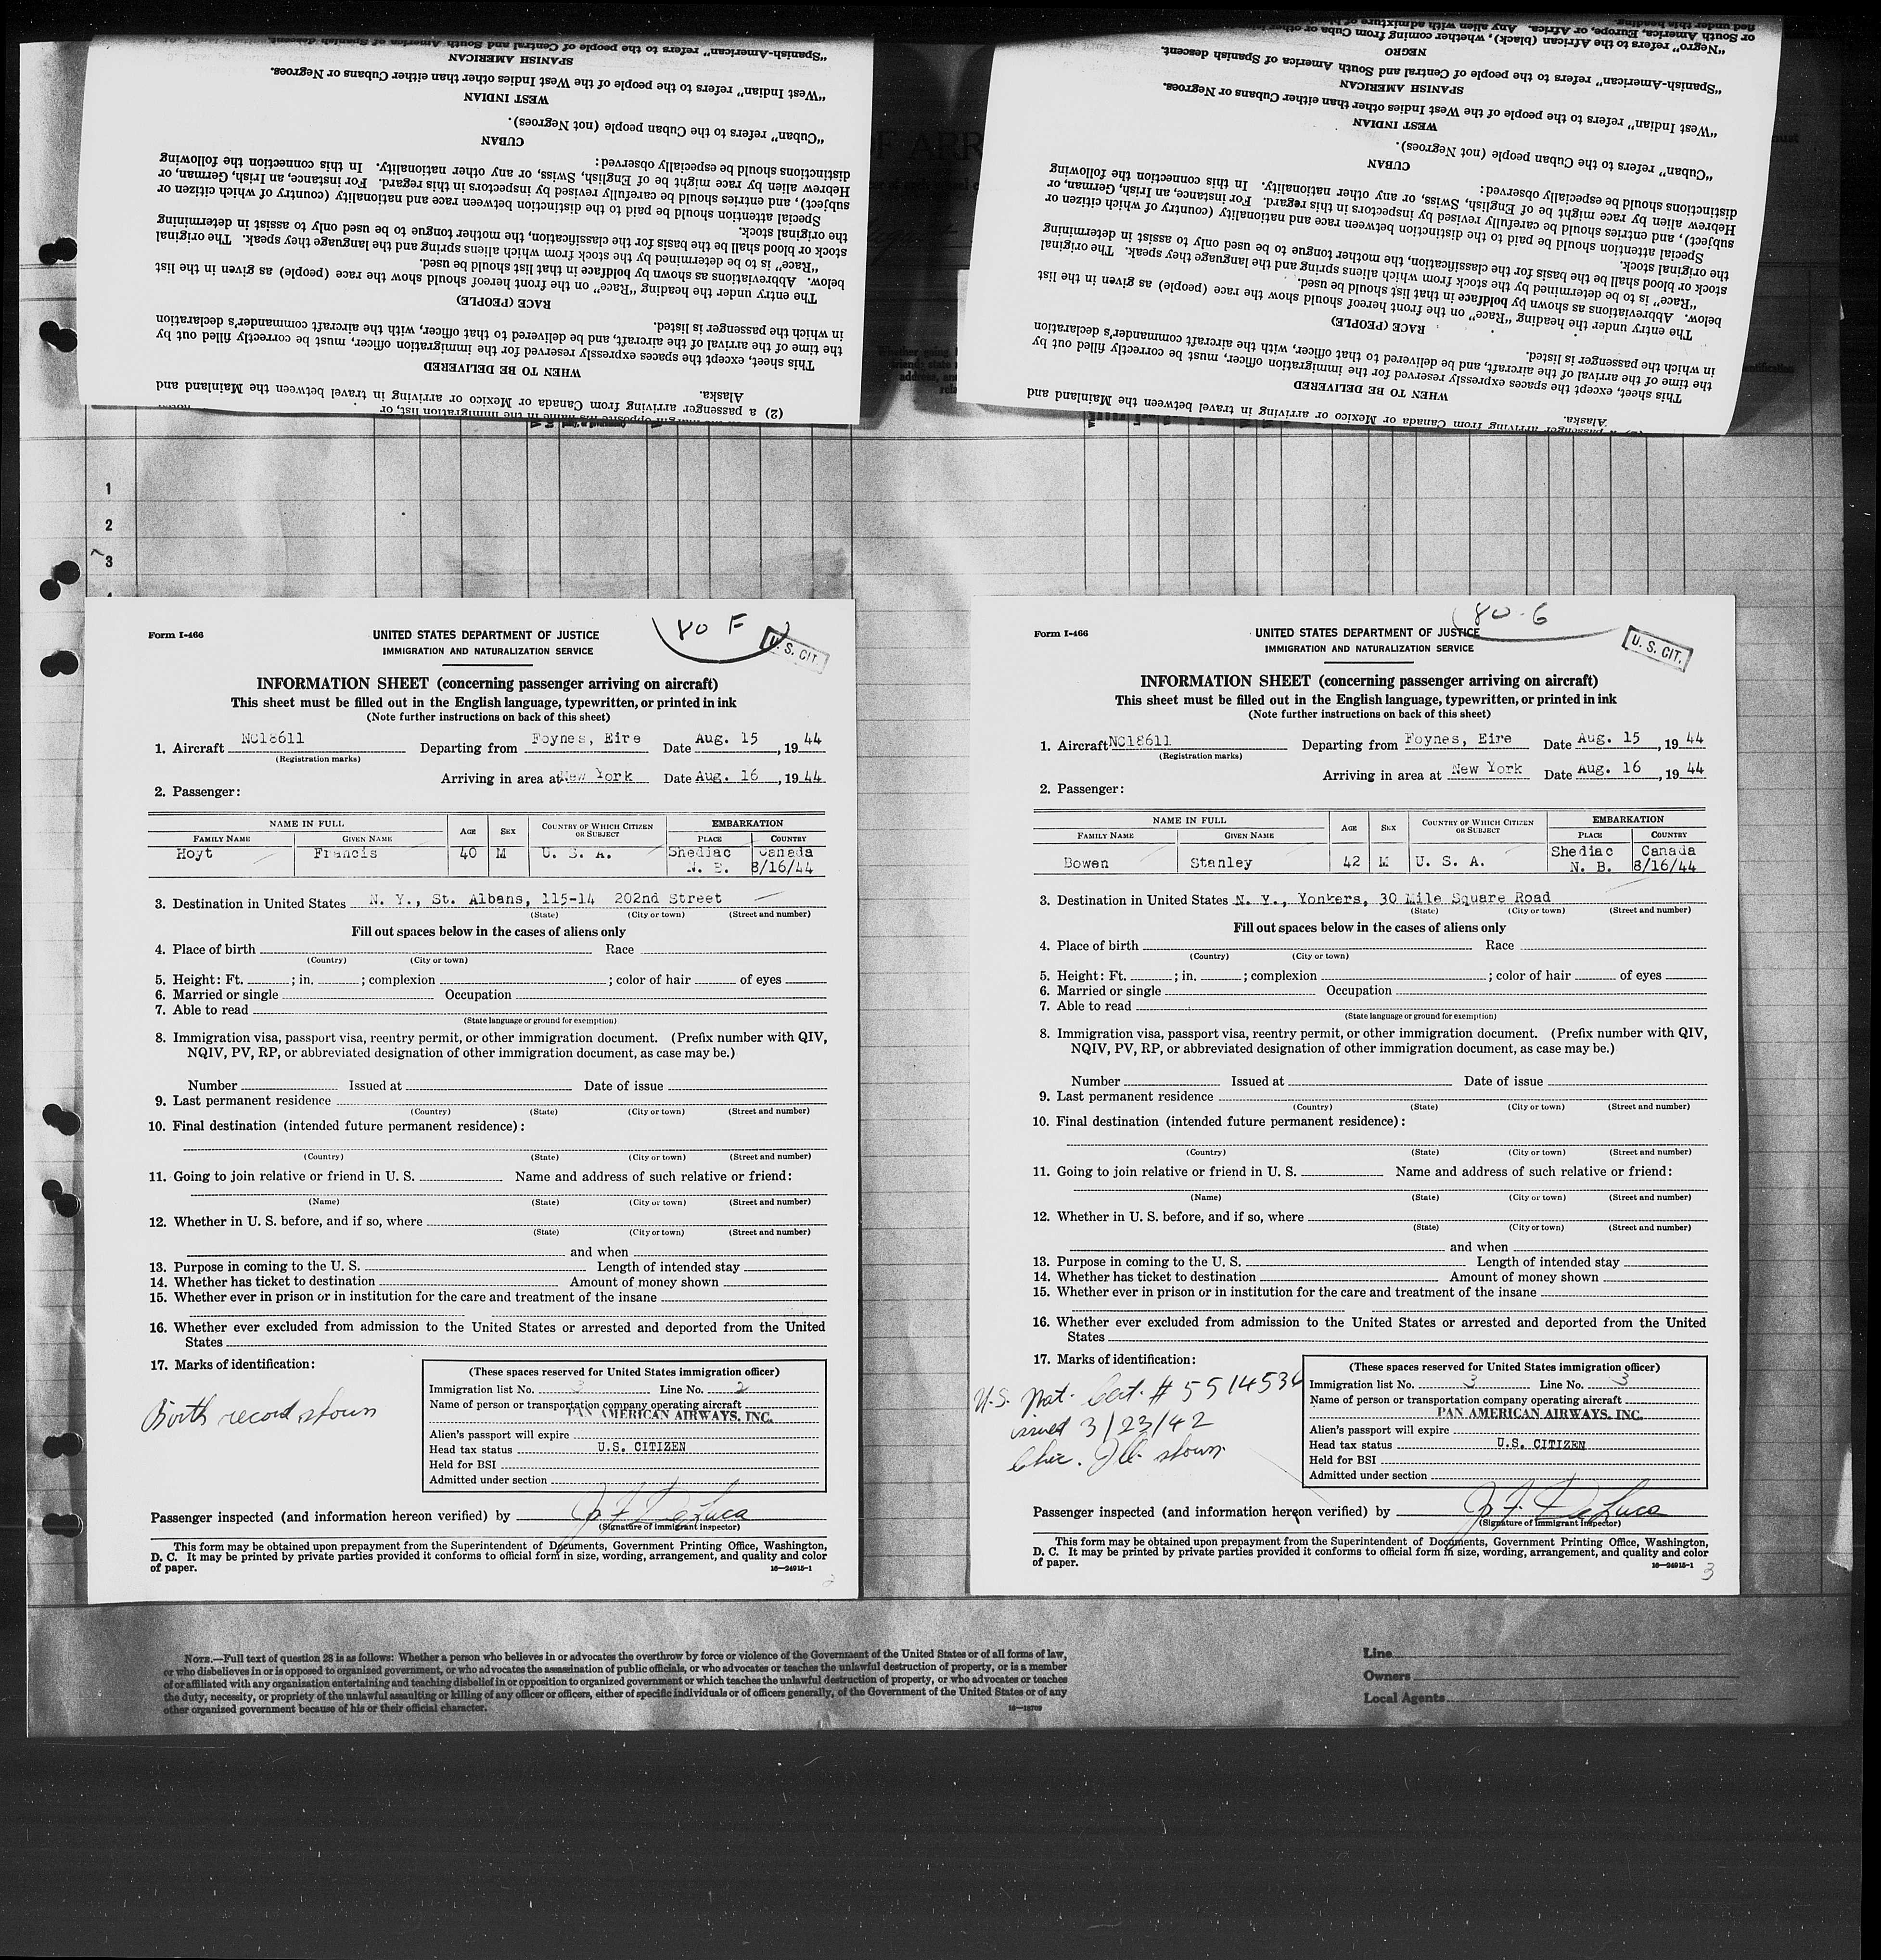 "Spanish-American" refers to the people of Central and South America of Spanish descent.
SPANISH AMERICAN
"West Indian" refers to the people of the West Indies other than either Cubans or Negroes.
WEST INDIAN
"Cuban" refers to the Cuban people (not Negroes).
CUBAN
distinctions should be especially observed:
Hebrew alien by race might be of English, Swiss, or any other nationality. In this connection the following
subject), and entries should be carefully revised by inspectors in this regard. For instance, an Irish, German, or
Special attention should be paid to the distinction between race and nationality (country of which citizen or
the original stock.
stock or blood shall be the basis for the classification, the mother tongue to be used only to assist in determining
"Race" is to be determined by the stock from which aliens spring and the language they speak. The original
below. Abbreviations as shown by boldface in that list should be used.
The entry under the heading "Race" on the front hereof should show the race (people) as given in the list
RACE (PEOPLE)
in which the passenger is listed.
the time of the arrival of the aircraft, and be delivered to that officer, with the aircraft commander's declaration
This sheet, except the spaces expressly reserved for the immigration officer, must be correctly filled out by
WHEN TO BE DELIVERED
Alaska.
(2) a passenger arriving from Canada or Mexico or arriving in travel between the Mainland and
opposite his name in the immigration list, or
fied under this heading.
or South America, Europe, or Africa. Any alien with admixture of
"Negro" refers to the African (black), whether coming from Cuba or other
NEGRO
"Spanish-American" refers to the people of Central and South America of Spanish descent.
SPANISH AMERICAN
"West Indian" refers to the people of the West Indies other than either Cubans or Negroes.
WEST INDIAN
"Cuban" refers to the Cuban people (not Negroes).
CUBAN
distinctions should be especially observed:
Hebrew alien by race might be of English, Swiss, or any other nationality. In this connection the following
subject), and entries should be carefully revised by inspectors in this regard. For instance, an Irish, German, or
Special attention should be paid to the distinction between race and nationality (country of which citizen or
the original stock.
stock or blood shall be the basis for the classification, the mother tongue to be used only to assist in determining
"Race" is to be determined by the stock from which aliens spring and the language they speak. The original
below. Abbreviations as shown by boldface in that list should be used.
The entry under the heading "Race" on the front hereof should show the race (people) as given in the list
RACE (PEOPLE)
in which the passenger is listed.
the time of the arrival of the aircraft, and be delivered to that officer, with the aircraft commander's declaration
This sheet, except the spaces expressly reserved for the immigration officer, must be correctly filled out by
WHEN TO BE DELIVERED
Alaska.
a passenger arriving from Canada or Mexico or arriving in travel between the Mainland and
1
2
3
80 F
U. S. CIT.
Form I-466
UNITED STATES DEPARTMENT OF JUSTICE
IMMIGRATION AND NATURALIZATION SERVICE
INFORMATION SHEET (concerning passenger arriving on aircraft)
This sheet must be filled out in the English language, typewritten, or printed in ink
(Note further instructions on back of this sheet)
1. Aircraft NC18611 Departing from Foynes, Eire Date Aug. 15, 1944
(Registration marks)
Arriving in area at New York Date Aug. 16, 1944
2. Passenger:
NAME IN FULL AGE SEX COUNTRY OF WHICH CITIZEN OR SUBJECT EMBARKATION
FAMILY NAME GIVEN NAME PLACE COUNTRY
Hoyt Francis 40 M U. S. A. Shediac Canada
N. B. 8/16/44
3. Destination in United States N. Y., St. Albans, 115-14 202nd Street
(State) (City or town) (Street and number)
Fill out spaces below in the cases of aliens only
4. Place of birth Race
(Country) (City or town)
5. Height: Ft. ; in. ; complexion ; color of hair of eyes
6. Married or single Occupation
7. Able to read
(State language or ground for exemption)
8. Immigration visa, passport visa, reentry permit, or other immigration document. (Prefix number with QIV,
NQIV, PV, RP, or abbreviated designation of other immigration document, as case may be.)
Number Issued at Date of issue
9. Last permanent residence
(Country) (State) (City or town) (Street and number)
10. Final destination (intended future permanent residence):
(Country) (State) (City or town) (Street and number)
11. Going to join relative or friend in U. S. Name and address of such relative or friend:
(Name) (State) (City or town) (Street and number)
12. Whether in U. S. before, and if so, where
(State) (City or town) (Street and number)
and when
13. Purpose in coming to the U. S. Length of intended stay
14. Whether has ticket to destination Amount of money shown
15. Whether ever in prison or in institution for the care and treatment of the insane
16. Whether ever excluded from admission to the United States or arrested and deported from the United
States
17. Marks of identification:
Birth record shown
(These spaces reserved for United States immigration officer)
Immigration list No. 3 Line No. 2
Name of person or transportation company operating aircraft
PAN AMERICAN AIRWAYS, INC.
Alien's passport will expire
Head tax status U.S. CITIZEN
Held for BSI
Admitted under section
Passenger inspected (and information hereon verified) by J. F. DeLuca
(Signature of Immigrant Inspector)
This form may be obtained upon prepayment from the Superintendent of Documents, Government Printing Office, Washington,
D. C. It may be printed by private parties provided it conforms to official form in size, wording, arrangement, and quality and color
of paper. 16—24915-1
2
80-6
U. S. CIT.
Form I-466
UNITED STATES DEPARTMENT OF JUSTICE
IMMIGRATION AND NATURALIZATION SERVICE
INFORMATION SHEET (concerning passenger arriving on aircraft)
This sheet must be filled out in the English language, typewritten, or printed in ink
(Note further instructions on back of this sheet)
1. Aircraft NC18611 Departing from Foynes, Eire Date Aug. 15, 1944
(Registration marks)
Arriving in area at New York Date Aug. 16, 1944
2. Passenger:
NAME IN FULL AGE SEX COUNTRY OF WHICH CITIZEN OR SUBJECT EMBARKATION
FAMILY NAME GIVEN NAME PLACE COUNTRY
Bowen Stanley 42 M U. S. A. Shediac Canada
N. B. 8/16/44
3. Destination in United States N. Y., Yonkers, 30 Mile Square Road
(State) (City or town) (Street and number)
Fill out spaces below in the cases of aliens only
4. Place of birth Race
(Country) (City or town)
5. Height: Ft. ; in. ; complexion ; color of hair of eyes
6. Married or single Occupation
7. Able to read
(State language or ground for exemption)
8. Immigration visa, passport visa, reentry permit, or other immigration document. (Prefix number with QIV,
NQIV, PV, RP, or abbreviated designation of other immigration document, as case may be.)
Number Issued at Date of issue
9. Last permanent residence
(Country) (State) (City or town) (Street and number)
10. Final destination (intended future permanent residence):
(Country) (State) (City or town) (Street and number)
11. Going to join relative or friend in U. S. Name and address of such relative or friend:
(Name) (State) (City or town) (Street and number)
12. Whether in U. S. before, and if so, where
(State) (City or town) (Street and number)
and when
13. Purpose in coming to the U. S. Length of intended stay
14. Whether has ticket to destination Amount of money shown
15. Whether ever in prison or in institution for the care and treatment of the insane
16. Whether ever excluded from admission to the United States or arrested and deported from the United
States
17. Marks of identification:
U.S. Nat. Cert. # 5514536
issued 3/23/42
Chic. Ill. shown
(These spaces reserved for United States immigration officer)
Immigration list No. 3 Line No. 3
Name of person or transportation company operating aircraft
PAN AMERICAN AIRWAYS, INC.
Alien's passport will expire
Head tax status U.S. CITIZEN
Held for BSI
Admitted under section
Passenger inspected (and information hereon verified) by J. F. DeLuca
(Signature of Immigrant Inspector)
This form may be obtained upon prepayment from the Superintendent of Documents, Government Printing Office, Washington,
D. C. It may be printed by private parties provided it conforms to official form in size, wording, arrangement, and quality and color
of paper. 16—24915-1
3
NOTE.—Full text of question 28 is as follows: Whether a person who believes in or advocates the overthrow by force or violence of the Government of the United States or of all forms of law,
or who disbelieves in or is opposed to organized government, or who advocates the assassination of public officials, or who advocates or teaches the unlawful destruction of property, or is a member
of or affiliated with any organization entertaining and teaching disbelief in or opposition to organized government or which teaches the unlawful destruction of property, or who advocates or teaches
the duty, necessity, or propriety of the unlawful assaulting or killing of any officer or officers, either of specific individuals or of officers generally, of the Government of the United States or of any
other organized government because of his or their official character.
Line
Owners
Local Agents